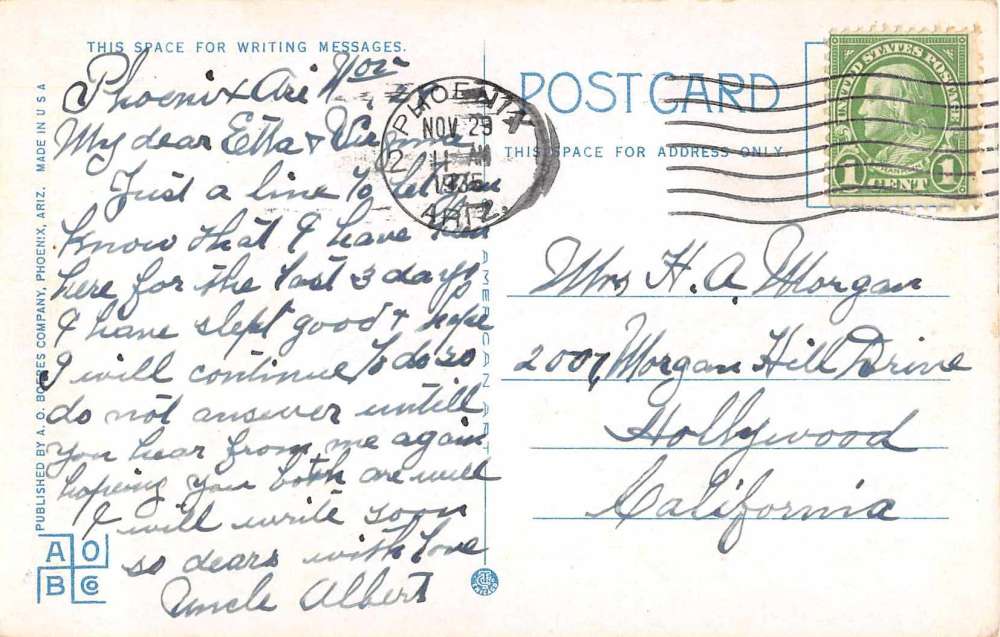 THIS SPACE FOR WRITING MESSAGES.
Phoenix Ari Nov
My dear Etta &
Just a line to let you
know that I have been
here for the last 3 days
I have slept good & hope
I will continue to do so
do not answer untill
you hear from me again
hoping you both are well
I will write soon
so dears with love
Uncle Albert
PUBLISHED BY A. O. BOERES COMPANY, PHOENIX, ARIZ. MADE IN U S A
A O
B Co
AMERICAN ART
PHOENIX
NOV 29
11 AM
1935
ARIZ.
2
POSTCARD
THIS SPACE FOR ADDRESS ONLY.
UNITED STATES POSTAGE
1 CENT 1
Mrs H. A. Morgan
2007 Morgan Hill Drive
Hollywood
California